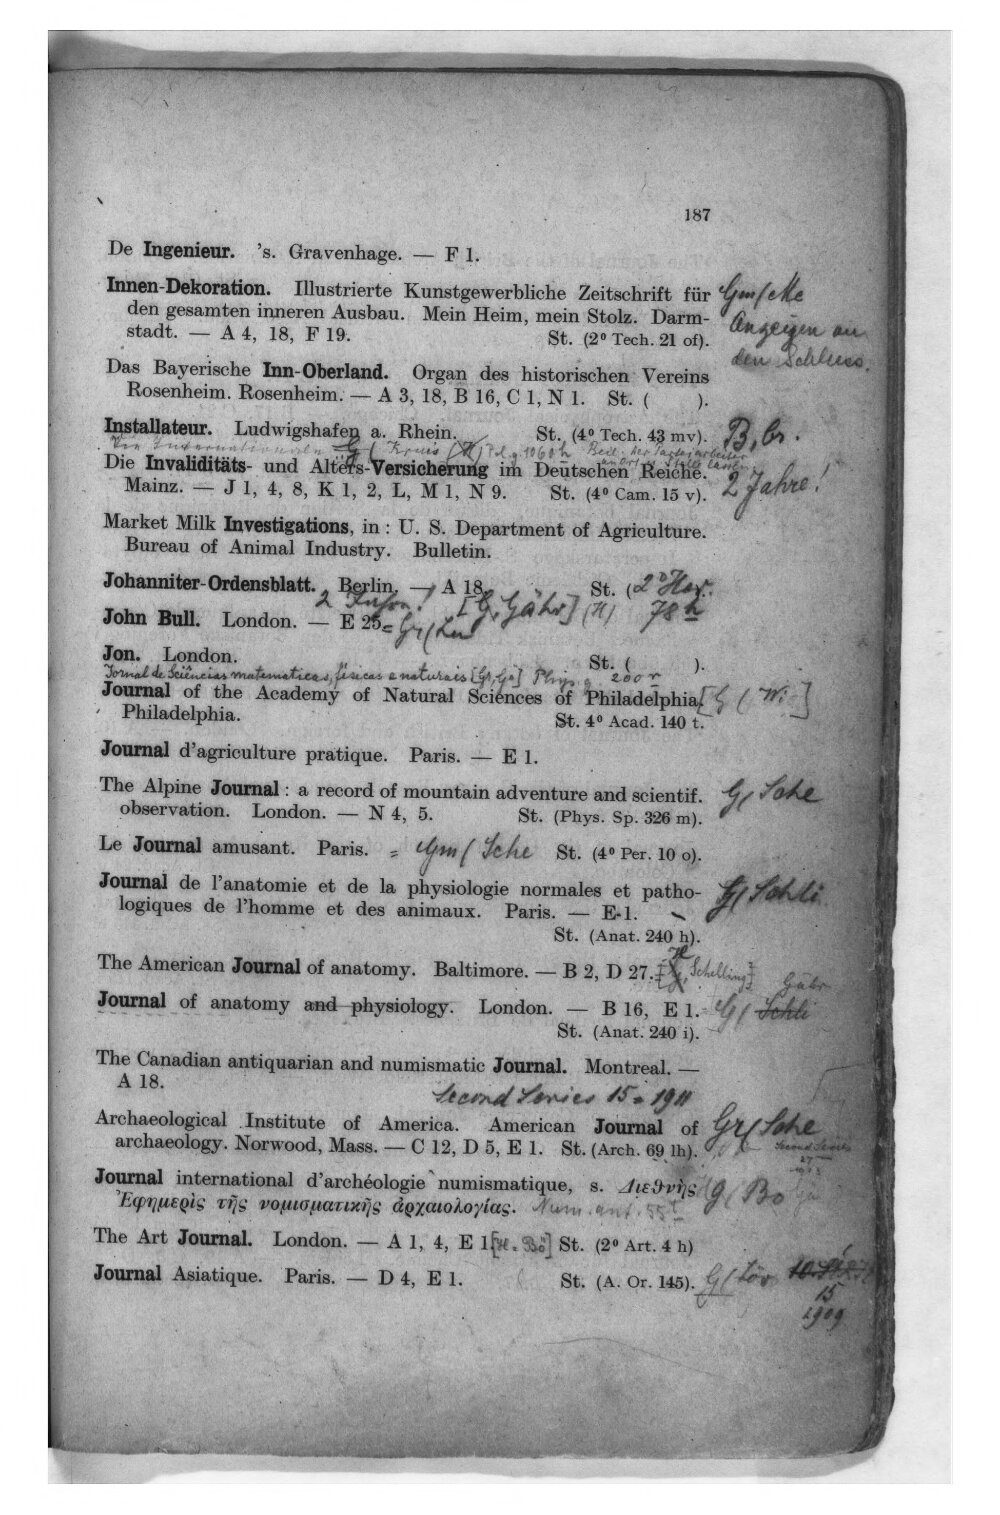 187
De Ingenieur. 's. Gravenhage. — F 1.
Innen-Dekoration. Illustrierte Kunstgewerbliche Zeitschrift für Gm/Me
den gesamten inneren Ausbau. Mein Heim, mein Stolz. Darm- Anzeigen an
stadt. — A 4, 18, F 19. St. (2⁰ Tech. 21 of). den Schluss.
Das Bayerische Inn-Oberland. Organ des historischen Vereins
Rosenheim. Rosenheim. — A 3, 18, B 16, C 1, N 1. St. ( ).
Installateur. Ludwigshafen a. Rhein. St. (4⁰ Tech. 43 mv).
Die Internationale
Die Invaliditäts- und Alters-Versicherung im Deutschen Reiche.
Mainz. — J 1, 4, 8, K 1, 2, L, M 1, N 9. St. (4⁰ Cam. 15 v). 2 Jahre!
Market Milk Investigations, in : U. S. Department of Agriculture.
Bureau of Animal Industry. Bulletin.
Johanniter-Ordensblatt. Berlin. — A 18. St. (2⁰ Her.
78 h
John Bull. London. — E 25
Jon. London. St. ( ).
Jornal de Sciências matematicas, físicas e naturais [Gr, Gä] Phys. g. 200 r
Journal of the Academy of Natural Sciences of Philadelphia.
Philadelphia. St. 4⁰ Acad. 140 t.
Journal d'agriculture pratique. Paris. — E 1.
The Alpine Journal : a record of mountain adventure and scientif. G/ Sche
observation. London. — N 4, 5. St. (Phys. Sp. 326 m).
Le Journal amusant. Paris. = Gm/ Sche St. (4⁰ Per. 10 o).
Journal de l'anatomie et de la physiologie normales et patho- G/ Schli
logiques de l'homme et des animaux. Paris. — E 1.
St. (Anat. 240 h).
The American Journal of anatomy. Baltimore. — B 2, D 27. Schelling
Gähr
Journal of anatomy and physiology. London. — B 16, E 1. G/ Schli
St. (Anat. 240 i).
The Canadian antiquarian and numismatic Journal. Montreal. —
A 18.
Second Series 15 = 1911
Archaeological Institute of America. American Journal of Gr/ Sche
archaeology. Norwood, Mass. — C 12, D 5, E 1. St. (Arch. 69 lh). Second Series
Journal international d'archéologie numismatique, s. Διεθνὴς g/ Bo
Ἐφημερὶς τῆς νομισματικῆς ἀρχαιολογίας. Num. ant. 55 t
The Art Journal. London. — A 1, 4, E 1. [H. Bö] St. (2⁰ Art. 4 h)
Journal Asiatique. Paris. — D 4, E 1. St. (A. Or. 145).
15
1909